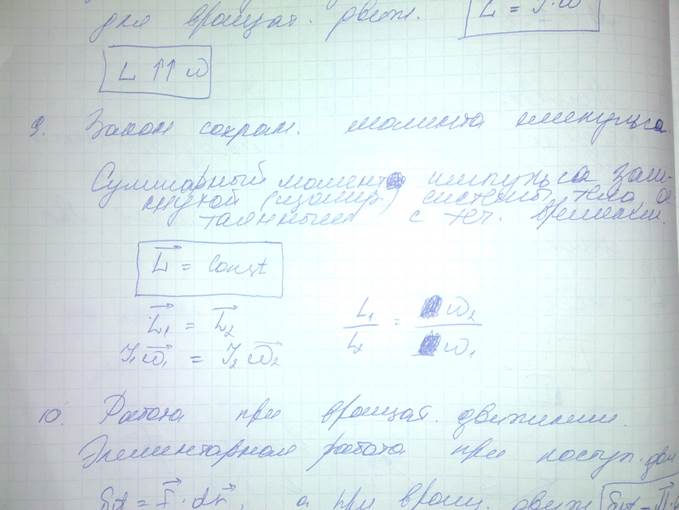 для вращат. движ. L = J·ω
L ↑↑ ω
9. Закон сохран. момента импульса
Суммарный момент импульса зам-
кнутой (изолир) системы тела, о
с теч. времени.
L⃗ = const
L⃗₁ = L⃗₂
J₁ω⃗₁ = J₂ω⃗₂
L₁/L₂ = ω₂/ω₁
10. Работа при вращат. движении.
Элементарная работа при поступ. дви
δA = F⃗·dr⃗, а при вращ. движ δA =